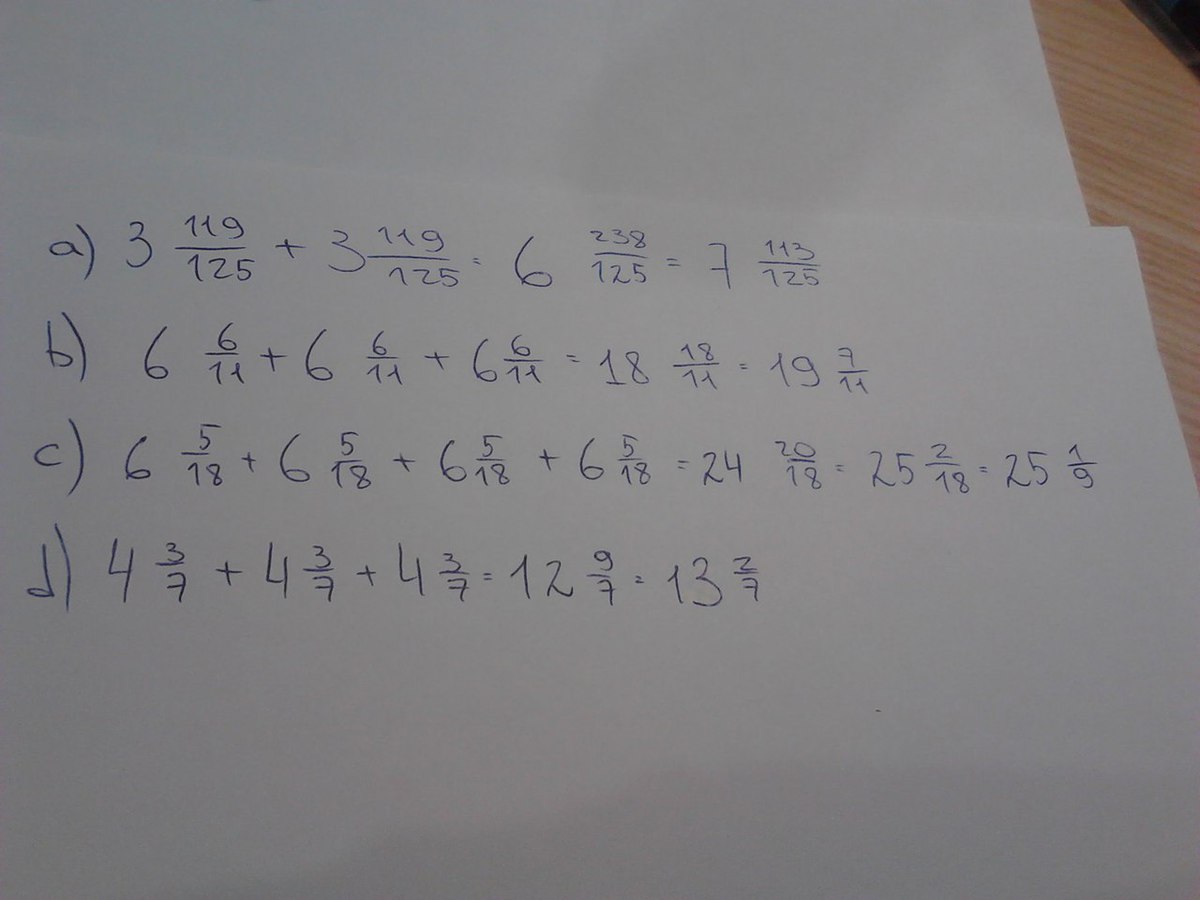 a) 3 119/125 + 3 119/125 = 6 238/125 = 7 113/125
b) 6 6/11 + 6 6/11 + 6 6/11 = 18 18/11 = 19 7/11
c) 6 5/18 + 6 5/18 + 6 5/18 + 6 5/18 = 24 20/18 = 25 2/18 = 25 1/9
d) 4 3/7 + 4 3/7 + 4 3/7 = 12 9/7 = 13 2/7